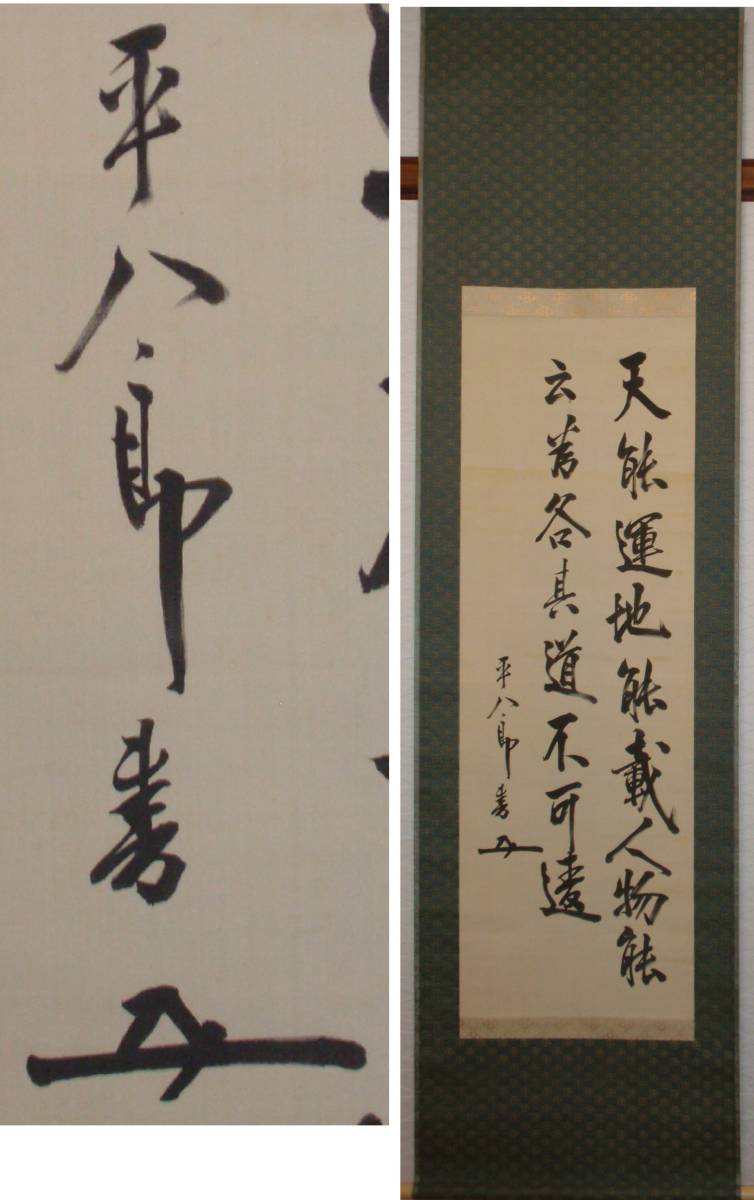 平八郎書
天能運地能載人物能
云為各其道不可違
平八郎書